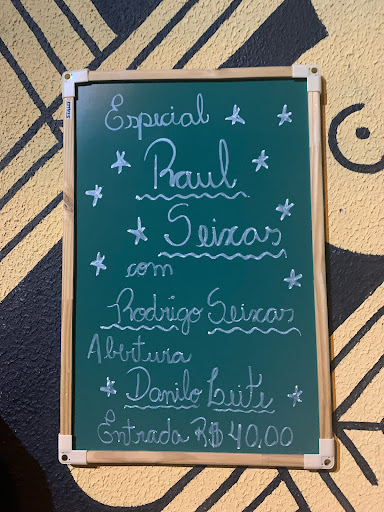 Especial
Raul
Seixas
com
Rodrigo Seixas
Abertura
Danilo Leite
Entrada R$ 40,00